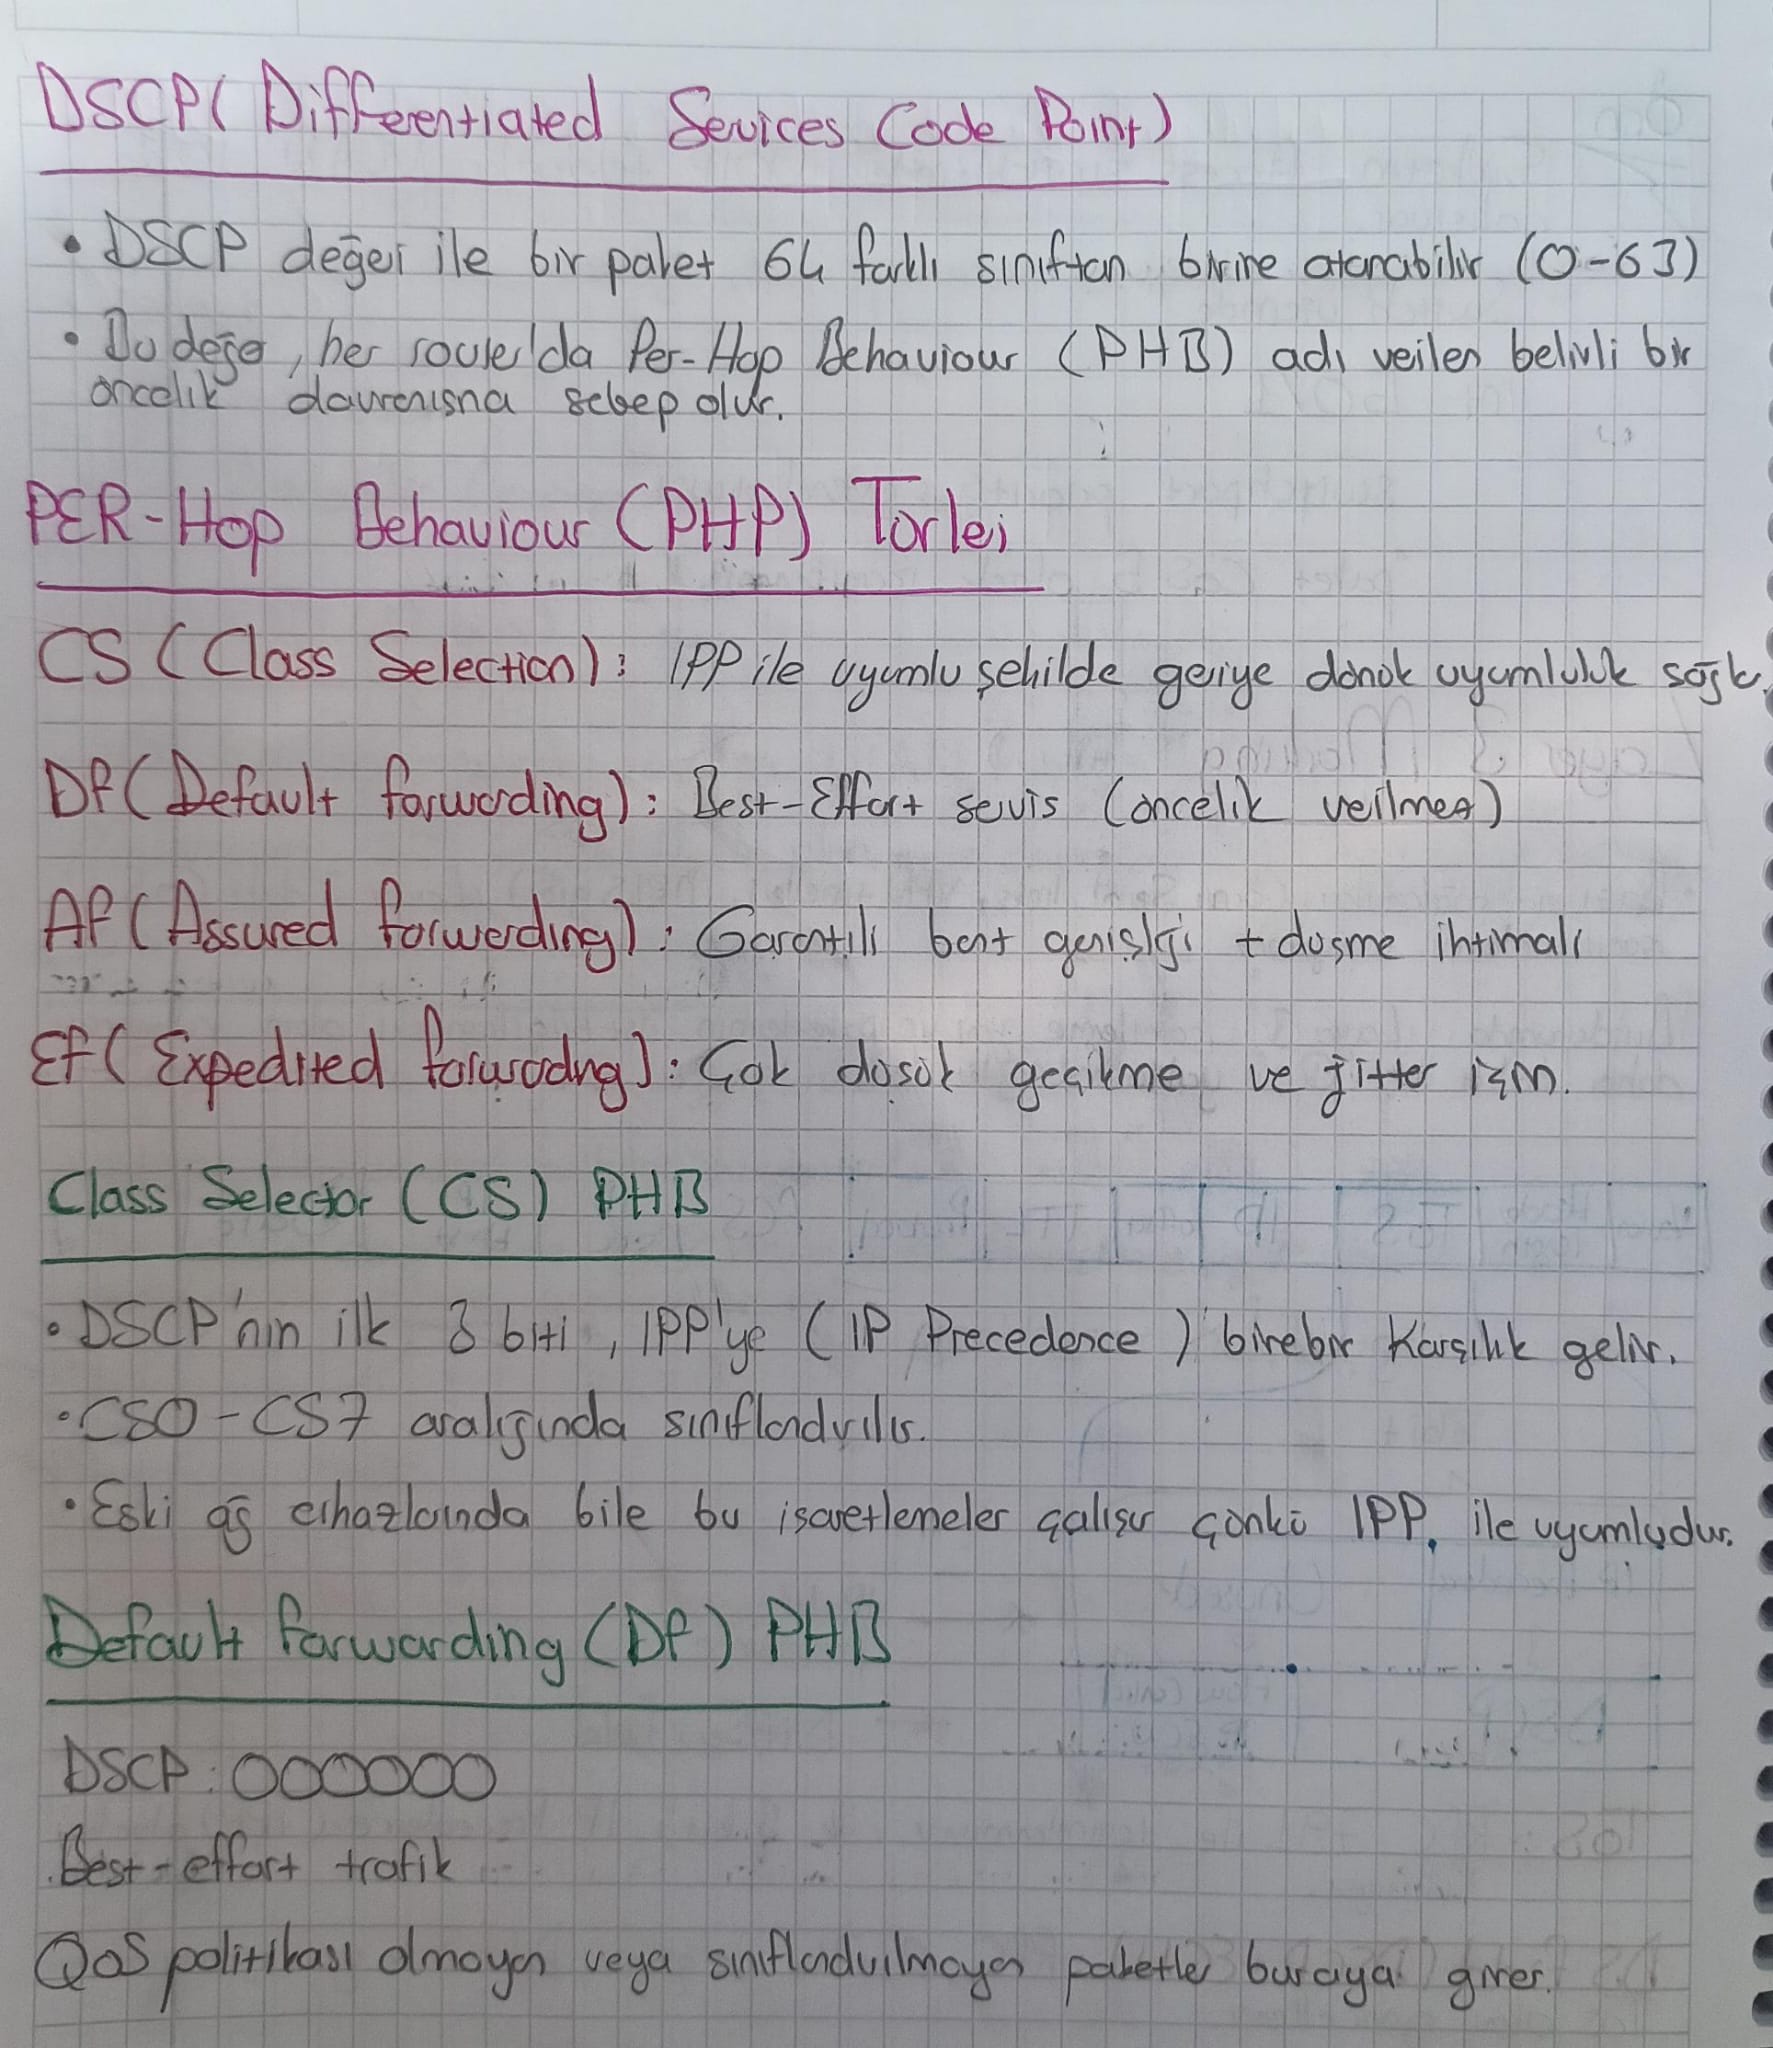 DSCP( Differentiated Sevices Code Point)
• DSCP değeri ile bir paket 64 farklı sınıftan birine atanabilir (0-63)
• Bu değer, her router'da Per-Hop Behaviour (PHB) adı verilen belirli bir
öncelik davranışına sebep olur.
PER-Hop Behaviour (PHP) Türleri
CS (Class Selection): IPP ile uyumlu şekilde geriye dönük uyumluluk sağlar.
DF(Default forwarding): Best-Effort servis (öncelik verilmez)
AF(Assured forwarding): Garantili bant genişliği + düşme ihtimali
EF( Expedited forwarding): Çok düşük gecikme ve jitter için.
Class Selector (CS) PHB
• DSCP'nin ilk 3 biti, IPP'ye (IP Precedence) birebir karşılık gelir.
• CS0-CS7 aralığında sınıflandırılır.
• Eski ağ cihazlarında bile bu işaretlemeler çalışır çünkü IPP. ile uyumludur.
Default forwarding (DF) PHB
DSCP: 000000
.Best-effort trafik
QoS politikası olmayan veya sınıflandırılmayan paketler buraya girer.